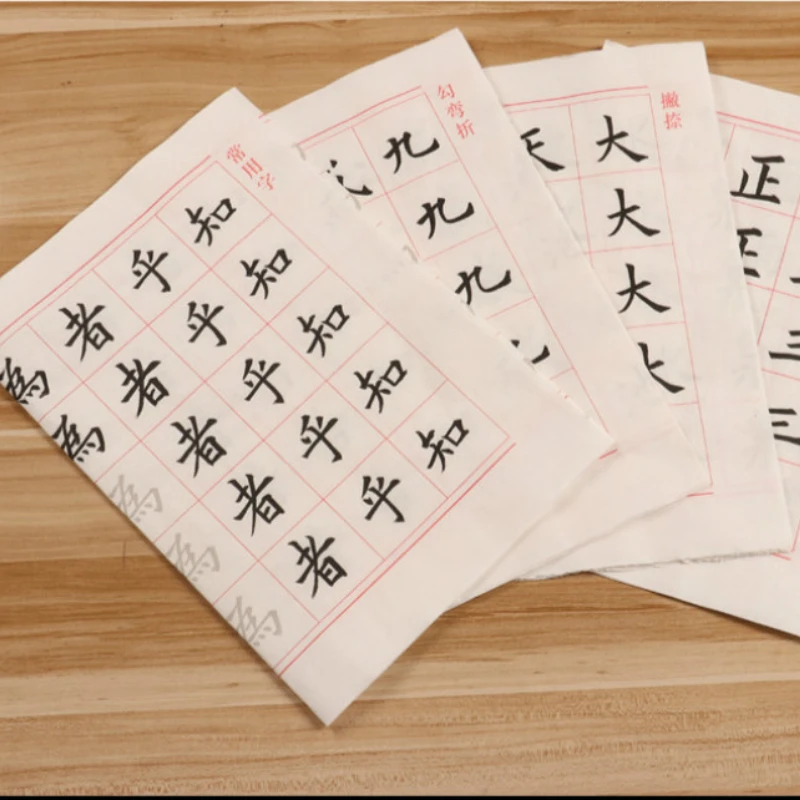 常用字
知知知知知
乎乎乎乎乎
者者者者者
為為為為為
勾弯折
九九九
撇捺
大大大
正